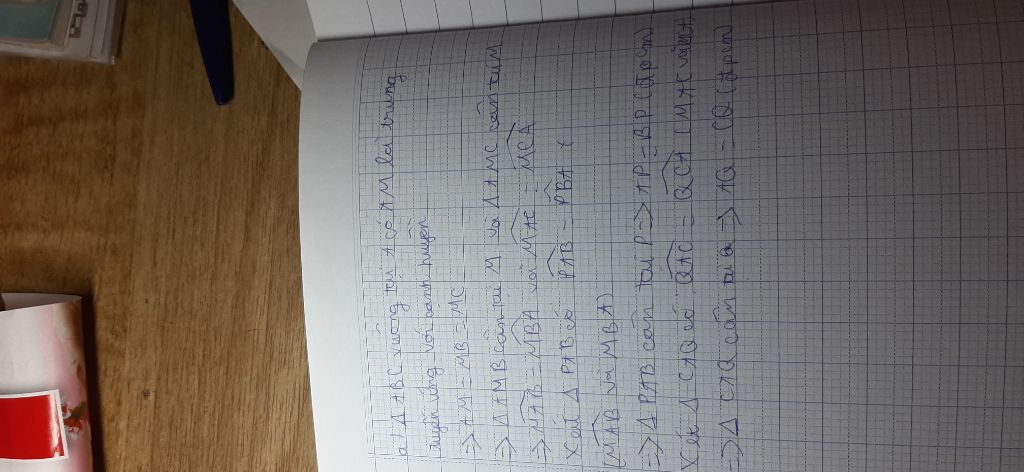 a) Δ ABC vuông tại A có AM là trung
tuyến ứng với cạnh huyền
=> AM = MB = MC
=> Δ AMB cân tại M và Δ AMC cân tại M
=> MAB = MBA và MAC = MCA
Xét Δ PAB có PAB = PBA (
(MAB và MBA)
=> Δ PAB cân tại P => AP = BP (đpcm)
Xét Δ CAQ có QAC = QCA (MAC và
=> Δ CAQ cân tại Q => AQ = CQ (đpcm)